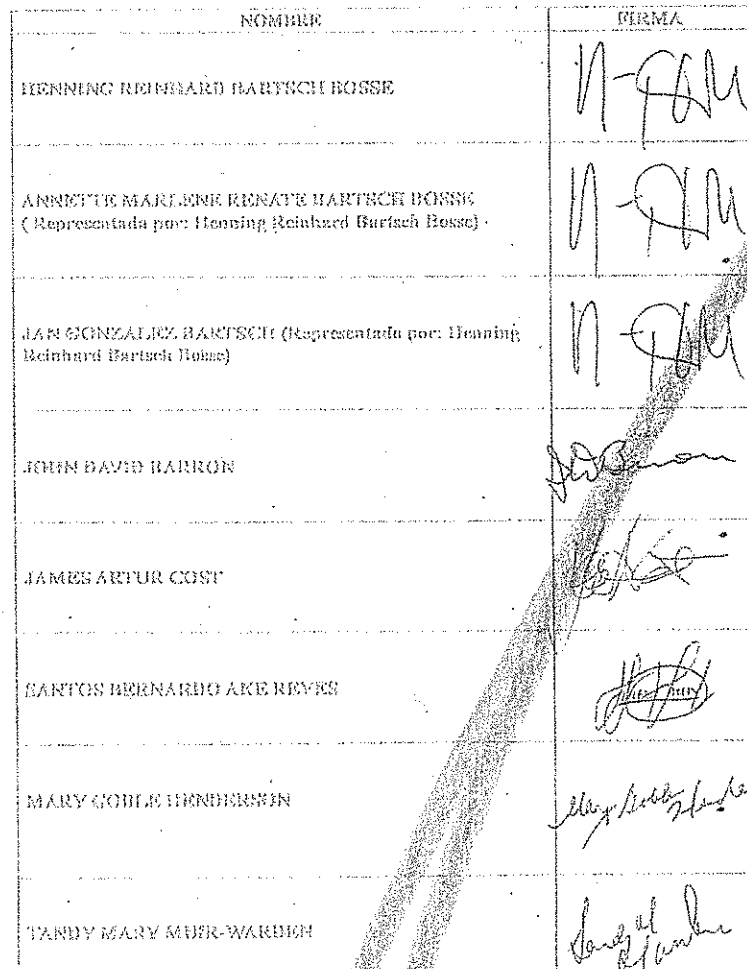 NOMBRE FIRMA
HENNING REINHARD BARTSCH BOSSE
ANNETTE MARLENE RENATE BARTSCH BOSSE
( Representada por: Henning Reinhard Bartsch Bosse)
JAN GONZALEZ BARTSCH (Representado por: Henning
Reinhard Bartsch Bosse)
JOHN DAVID BARRON
JAMES ARTUR COST
SANTOS BERNARDO AKE REYES
MARY GOBLE HENDERSON
TANDY MARY MUIR-WARDEN